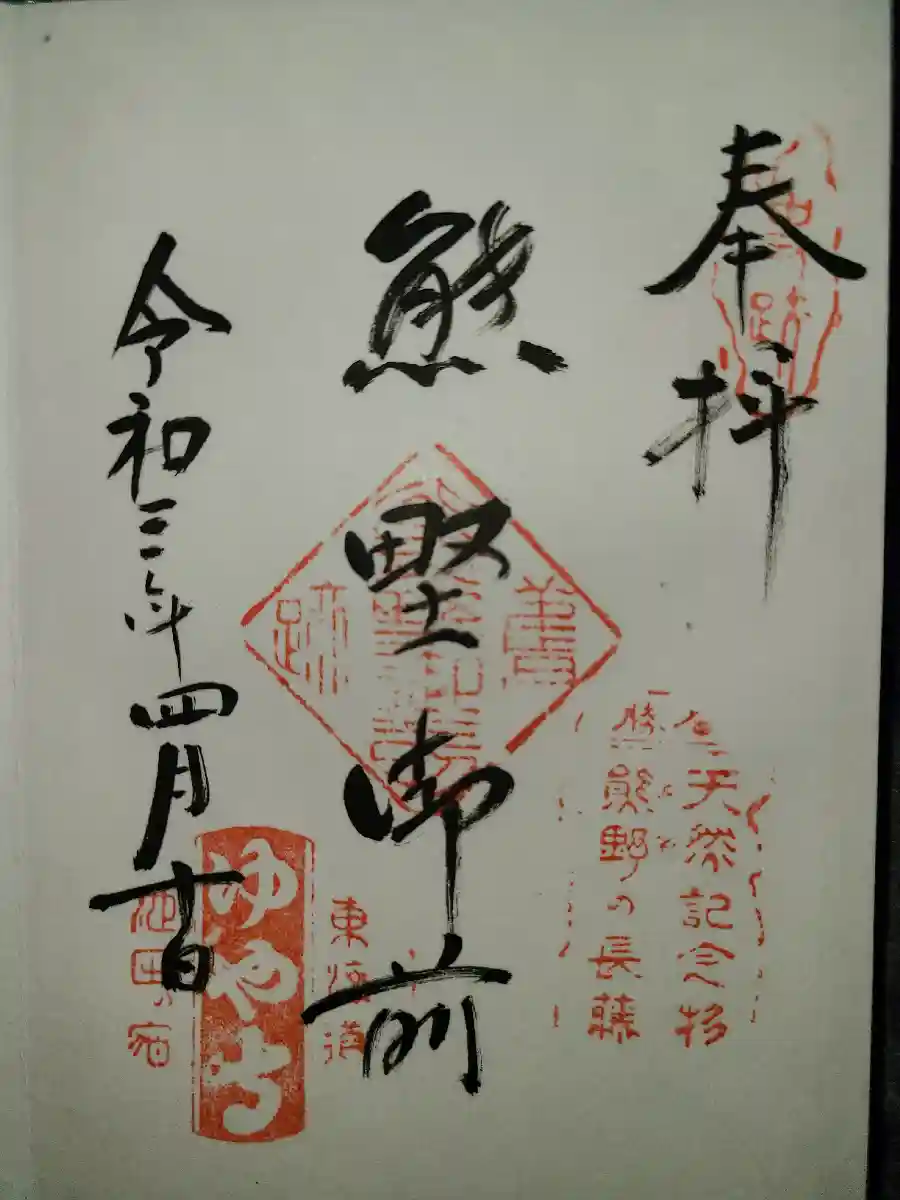 奉拝
熊野御前
令和三年四月十日
天然記念物
熊野の長藤
跡
東海道
ゆや寺
池田宿